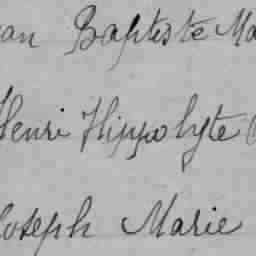 an Baptiste Ma
Henri Hippolyte
Joseph Marie